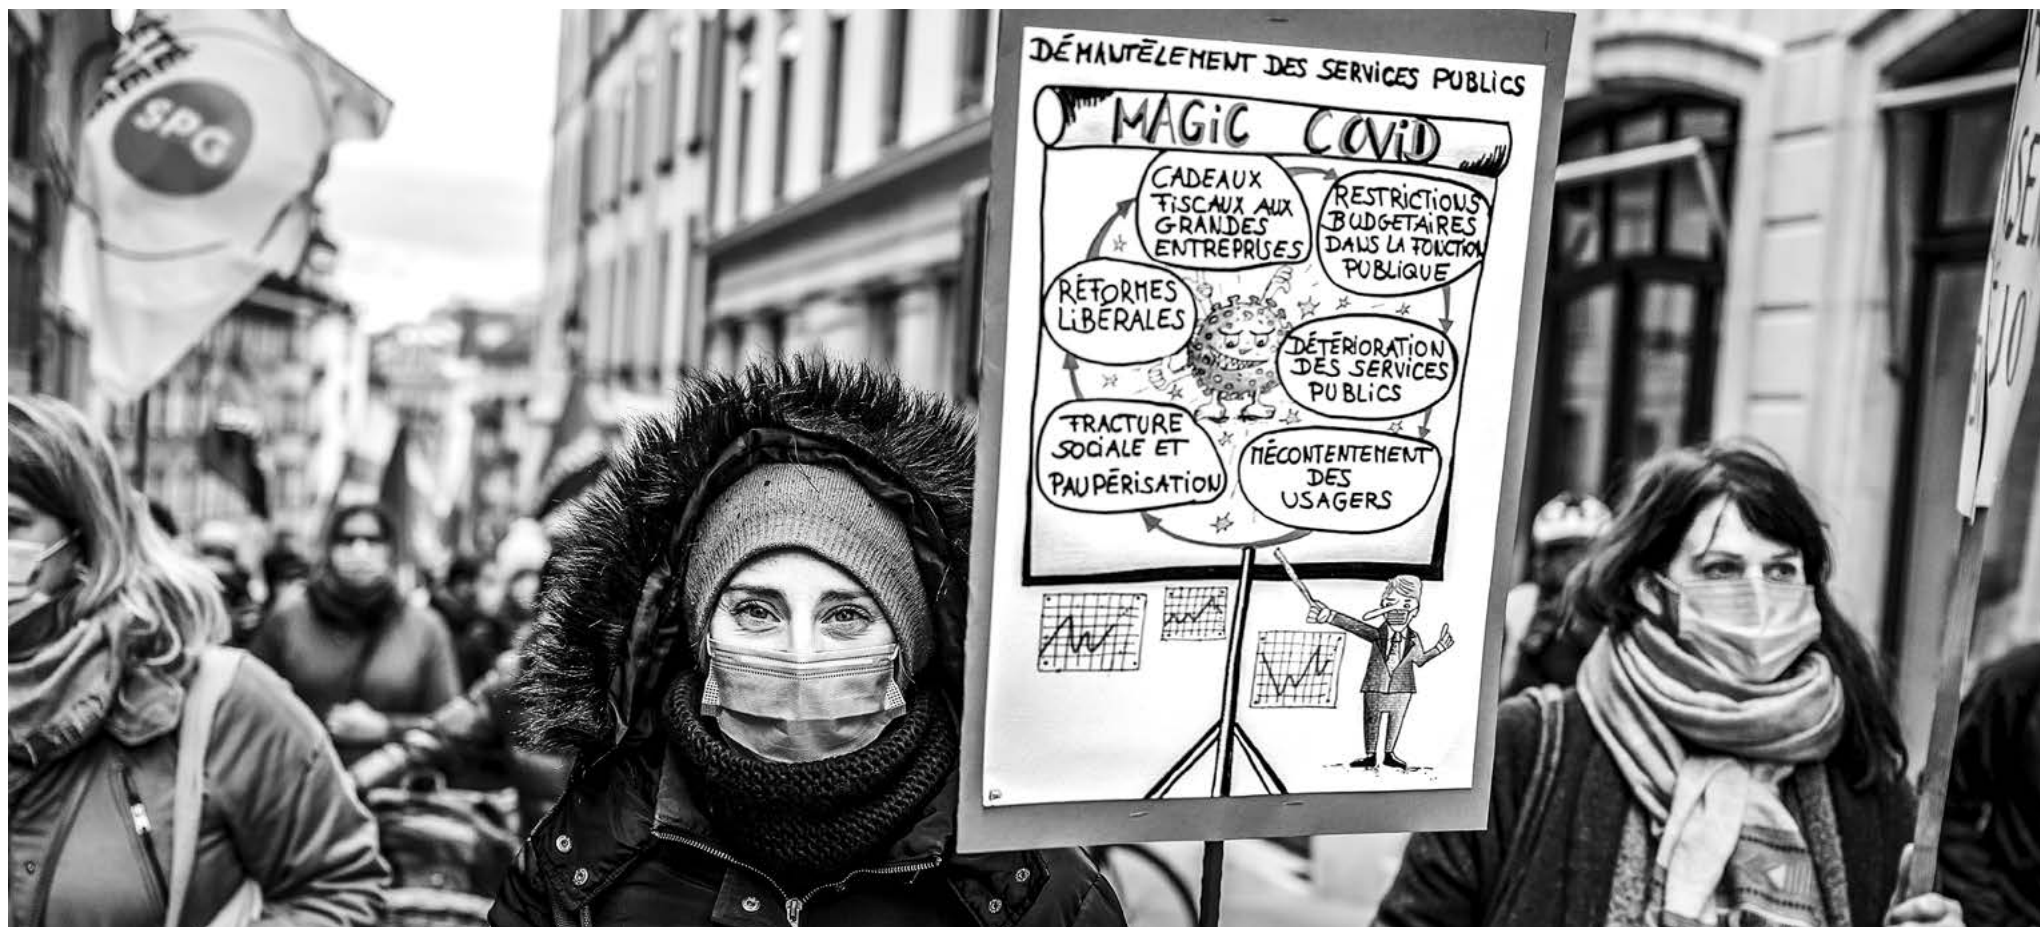 SPG
DÉMANTÈLEMENT DES SERVICES PUBLICS
MAGiC COViD
CADEAUX
FISCAUX AUX
GRANDES
ENTREPRISES
RESTRICTIONS
BUDGETAIRES
DANS LA FONCTION
PUBLIQUE
DÉTÉRIORATION
DES SERVICES
PUBLICS
MÉCONTENTEMENT
DES
USAGERS
FRACTURE
SOCIALE ET
PAUPÉRISATION
RÉFORMES
LIBÉRALES